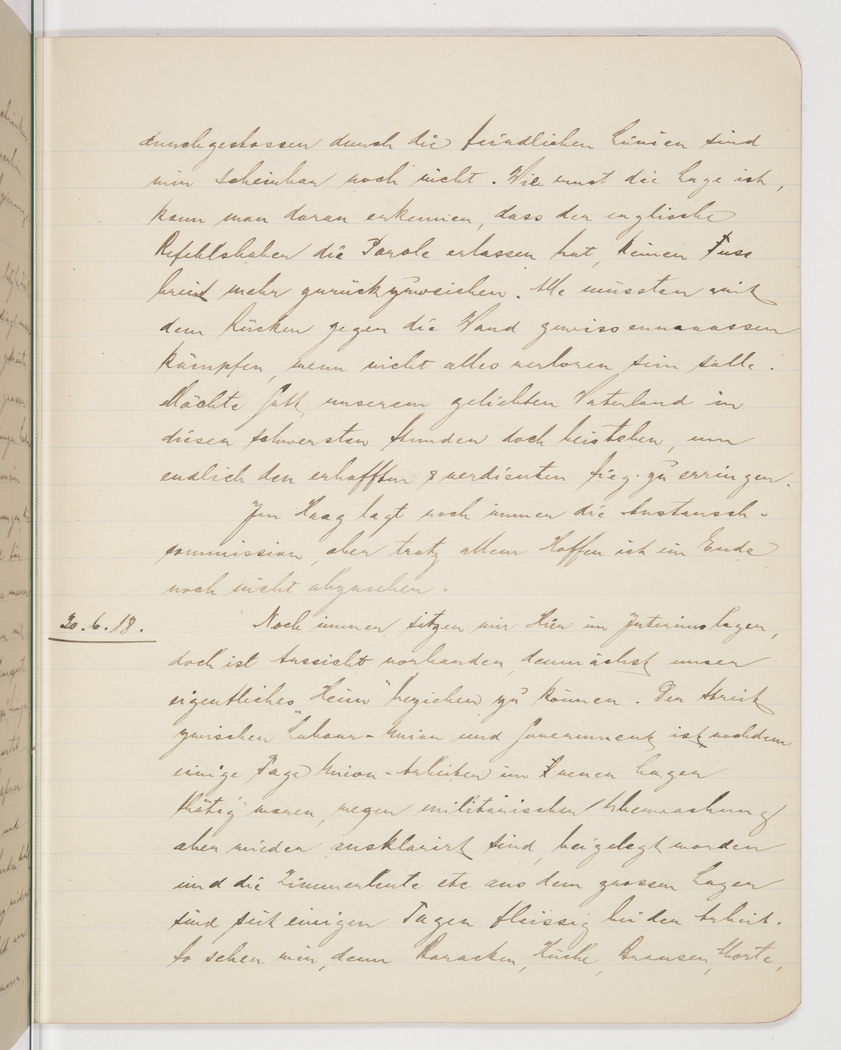 durchgestossen durch die feindlichen Linien sind
wir scheinbar noch nicht. Wie ernst die Lage ist,
kann man daran erkennen, dass der englische
Befehlshaber die Parole erlassen hat, keinen Fuss
breit mehr zurückzuweichen. Alle müssten mit
dem Rücken gegen die Wand gewissermaassen
kämpfen, wenn nicht alles verloren sein solle.
Möchte Gott unserem geliebten Vaterland in
diesen schwersten Stunden doch beistehen, um
endlich den erhofften & verdienten Sieg zu erringen.
Im Haag tagt noch immer die Austausch-
commission, aber trotz allem Hoffen ist ein Ende
noch nicht abzusehen.
20.6.18. Noch immer sitzen wir hier im Interimslager,
doch ist Aussicht vorhanden, demnächst unser
eigentliches "Heim" beziehen zu können. Der Streit
zwischen Labour-Union und Government ist, nachdem
einige Tage Union-Arbeiter im neuen Lager
thätig waren, wegen militärischer Überwachung
aber wieder ausklariert sind, beigelegt worden
und die Zimmerleute etc aus dem grossen Lager
sind seit einigen Tagen fleissig bei der Arbeit.
So sehen wir, denn Baracken, Küche, Brausen,